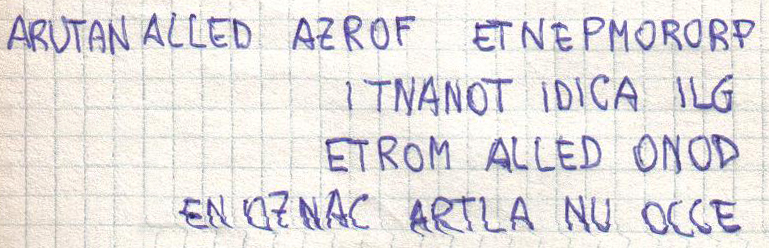 ARUTAN ALLED AZROF ETNEPMORORP
ITNANOT IDICA ILG
ETROM ALLED ONOD
ENOZNAC ARTLA NU OCCE